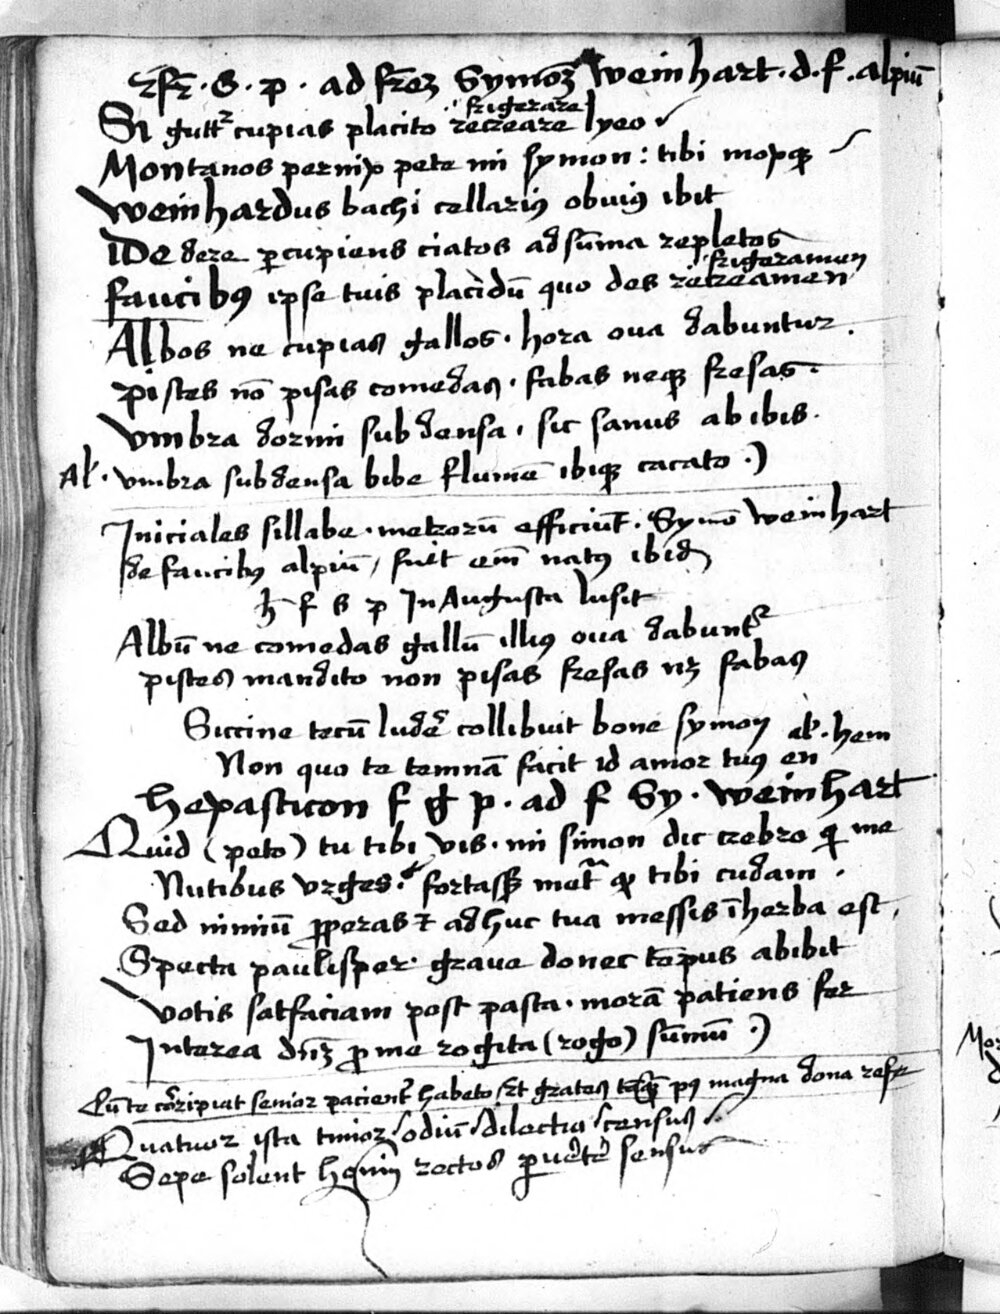 frī · S · p · ad frēz Symōz weinhart · d · f · alpiū
frigerare
Si gutt᷑ cupias placito recreare lyeo
Montanos pernix pete mi symon : tibi moxqꝫ
Weinhardus bachi cellariꝰ obuiꝰ ibit
IDe dere ꝑcupiens ciatos ad sūma repletos
frigeramen
faucibꝰ ipse tuis placidū quo des recreamen
Albos ne cupias gallos · hora oua dabuntur .
pistes nō pisas comedas · fabas neqꝫ fresas .
Vmbra dormi sub densa · sic sanus abibis .
Al' · vmbra sub densa bibe flumē ibiqꝫ cacato · )
Iniciales sillabe · metrorū efficiūt · Symō weinhart
de faucibꝰ alpiū / fuit em̄ natꝰ ibid
h f s p In Augusta lusit
Albū ne comedas gallū illiꝰ oua dabunt᷑
pistes mandito non pisas fresas nꝫ fabas
Siccine tecū luđe collibuit bone symon al' · hem
Non quo te temnā facit id amor tuꝰ en
Hepasticon f g p · ad f Sy · weinhart
Quid ( peto ) tu tibi vis · mi simon dic crebro ꝙ me
Nutibus vrges · fortass met ꝙ tibi cudam ·
Sed nimiū ꝓperas ⁊ adhuc tua messis ī herba est ,
Specta paulisper · graue donec tēpus abibit
Votis satfaciam post pasta · morā patiens fer
Interea dn̄ꝫ pro me rogita ( rogo ) sūmū · )
Cū te cōripiat senior pacient᷑ habeto / grates pꝰ magna dona refer
Quatuor ista timor / odiū / dilectio / census /
Sepe solent hoīm rectos ꝑuẽtẽ sensus